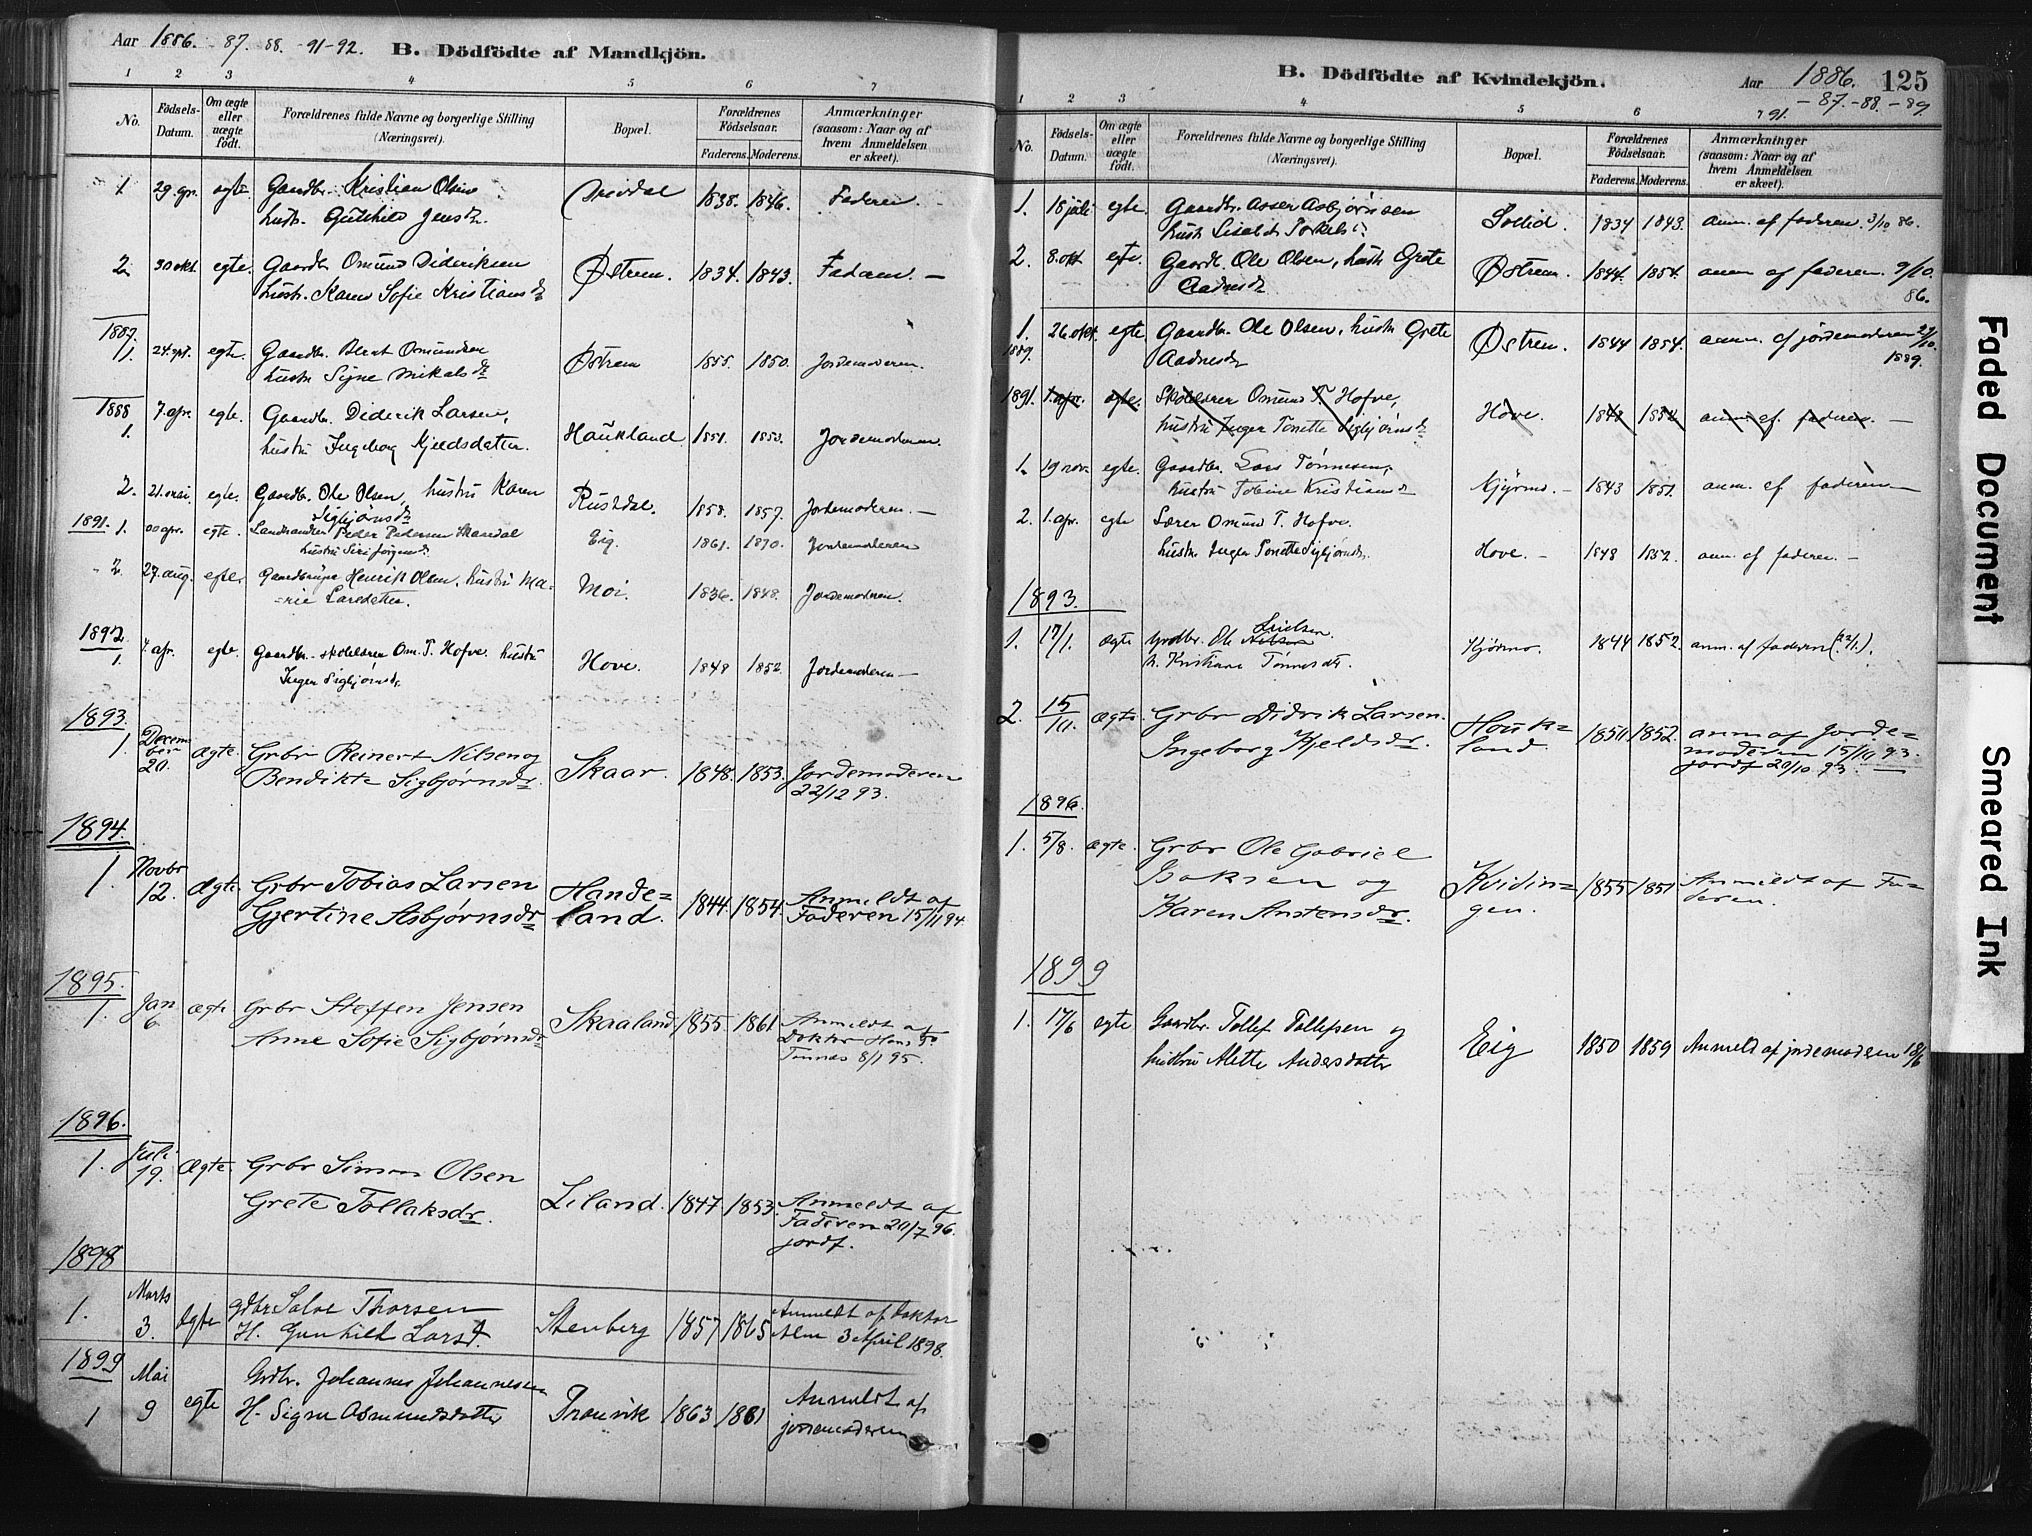 Aar 1886. -87. -88. -91-92.
B. Dödfödte af Mandkjön.
1 2 3 4 5 6 7
No. Födsels-Datum. Om ægte eller uægte födt. Forældrenes fulde Navne og borgerlige Stilling (Næringsvei). Bopæl. Forældrenes Födselsaar. Faderens. Moderens. Anmærkninger (saasom: Naar og af hvem Anmeldelsen er skeet).
1 29 egte Gaardbr. Kristian Olsen 1838. 1846. Faderen
hustr. Jensdr.
2 30 okt. egte. Gaardbr. Omund Dideriksen Østrem. 1834. 1843. Faderen. —
hustr. Karen Sofie Kristiansdr
1887.
1. 24. egte. Gaardbr. Bernt Omundsen Østrem 1855. 1850. Jordemoderen.
hustr. Signe Mikalsdr
1888
1. 7. apr. egte. Gaardbr. Diderik Larsen, Haukland 1851. 1853. Jordemoderen.
hustru Ingeborg Kjeldsdatter.
2. 21. mai. egte. Gaardbr. Ole Olsen, hustru Karen Rustdal. 1858. 1857. Jordemoderen. —
Sigbjørnsdr
1891. 1. apr. egte. Landhandler Peder Pedersen Eig. 1861. 1870. Jordemoderen
hustru Siri Jørgensdr.
2. 27. aug. Gaardbruger Henrik Olsen, hustru Ma- Moi. 1836. 1848. Jordemoderen.
-rie Larsdatter.
1892
1. 7. apr. egte. Gaardbr. skolelærer Om. T. Hofve. hustru Hove. 1848 1852. Jordemoderen —
Inger Sigbjørnsdr.
1893.
1. December 20. Ægte. Grbr Reinert Nilsen og Skaar. 1848. 1853. Jordemoderen
Bendikte Sigbjørnsdr. 22/12 93.
1894.
1. Novbr 12. Ægte. Grbr Tobias Larsen Hande= 1844. 1854. Anmeldt af
Gjertine Asbjørnsdr land. Faderen 15/11 94.
1895.
1. Jan 6. Ægte Grbr Steffen Jensen Skaaland 1855. 1861. Anmeldt af
Anne Sofie Sigbjørnsdr Doktor
8/1 95.
1896.
1. Juli 19. Ægte. Grbr Simon Olsen Liland. 1847 1853. Anmeldt af
Grete Tollaksdr. Faderen 20/7 96.
jordf.
1898
1. Marts 3. Ægte gdbr Salve Thorsen Stenberg 1857 1865 Anmeldt af Doktor
H. Gunhild Larsd. Alm 3 April 1898.
1899
1 Mai 9 egte Grdbr. Johannes Johannesen 1863 1861 Anmeldt af
H. Signe Osmundsdatter jordemoderen
B. Dödfödte af Kvindekjön.
Aar 1886. 125
91. -87.-88.-89.
1 2 3 4 5 6 7
No. Födsels-Datum. Om ægte eller uægte födt. Forældrenes fulde Navne og borgerlige Stilling (Næringsvei). Bopæl. Forældrenes Födselsaar. Faderens. Moderens. Anmærkninger (saasom: Naar og af hvem Anmeldelsen er skeet).
1. 18 juli egte. Gaardbr. Asser Asbjørnsen Sollid. 1834 1843. anm. af faderen 3/10 86.
hustr.
2. 8. okt egte. Gaardb. Ole Olsen, hustr Grete Østrem. 1844. 1854. anm af faderen. 9/10.
Aadnesdr 86.
1. 26. okt. egte Gaardbr. Ole Olsen, hustr Grete Østrem. 1844 1854. anm. af jordemoderen 27/10.
1889. Aadnesdr 1889.
1891. 1. apr. egte. Skolelærer Omund T. Hofve, Hove. 1848 1852 anm. af faderen. —
hustru Inger Tonette Sigbjørnsdr
1. 19 nov. egte. Gaardbr. Lars Tønnesen, 1843 1851. anm. af faderen —
hustru Tobine Kristiansdr
2. 1. apr. egte Lærer Omund T. Hofve. Hove. — 1848 1852. anm. af faderen —
hustr. Inger Tonette Sigbjørnsdr.
1893.
1. 17/1. ægte Grdbr. Ole Kjørmo. 1844 1852. anm. af faderen (22/1).
h. Kristiane Tønnesdt.
2. 15/10. Ægte. Grbr Didrik Larsen. Houk= 1851 1852. anm af Jorde=
Ingeborg Kjeldsdr. land. moderen 15/10 93.
jordf 20/10 93.
1896.
1. 5/8. Ægte. Grbr Ole Gabriel
Isaksen og Kvidin= 1855 1851 Anmeldt af Fa=
Karen Anstensdr. gen. deren.
1899
1. 17/6 egte Gaardbr. Tollef Tollefsen og Eig 1850 1859 Anmeld af jordemoderen 18/6
hustru Alette Andersdatter
Faded Document
Smeared Ink